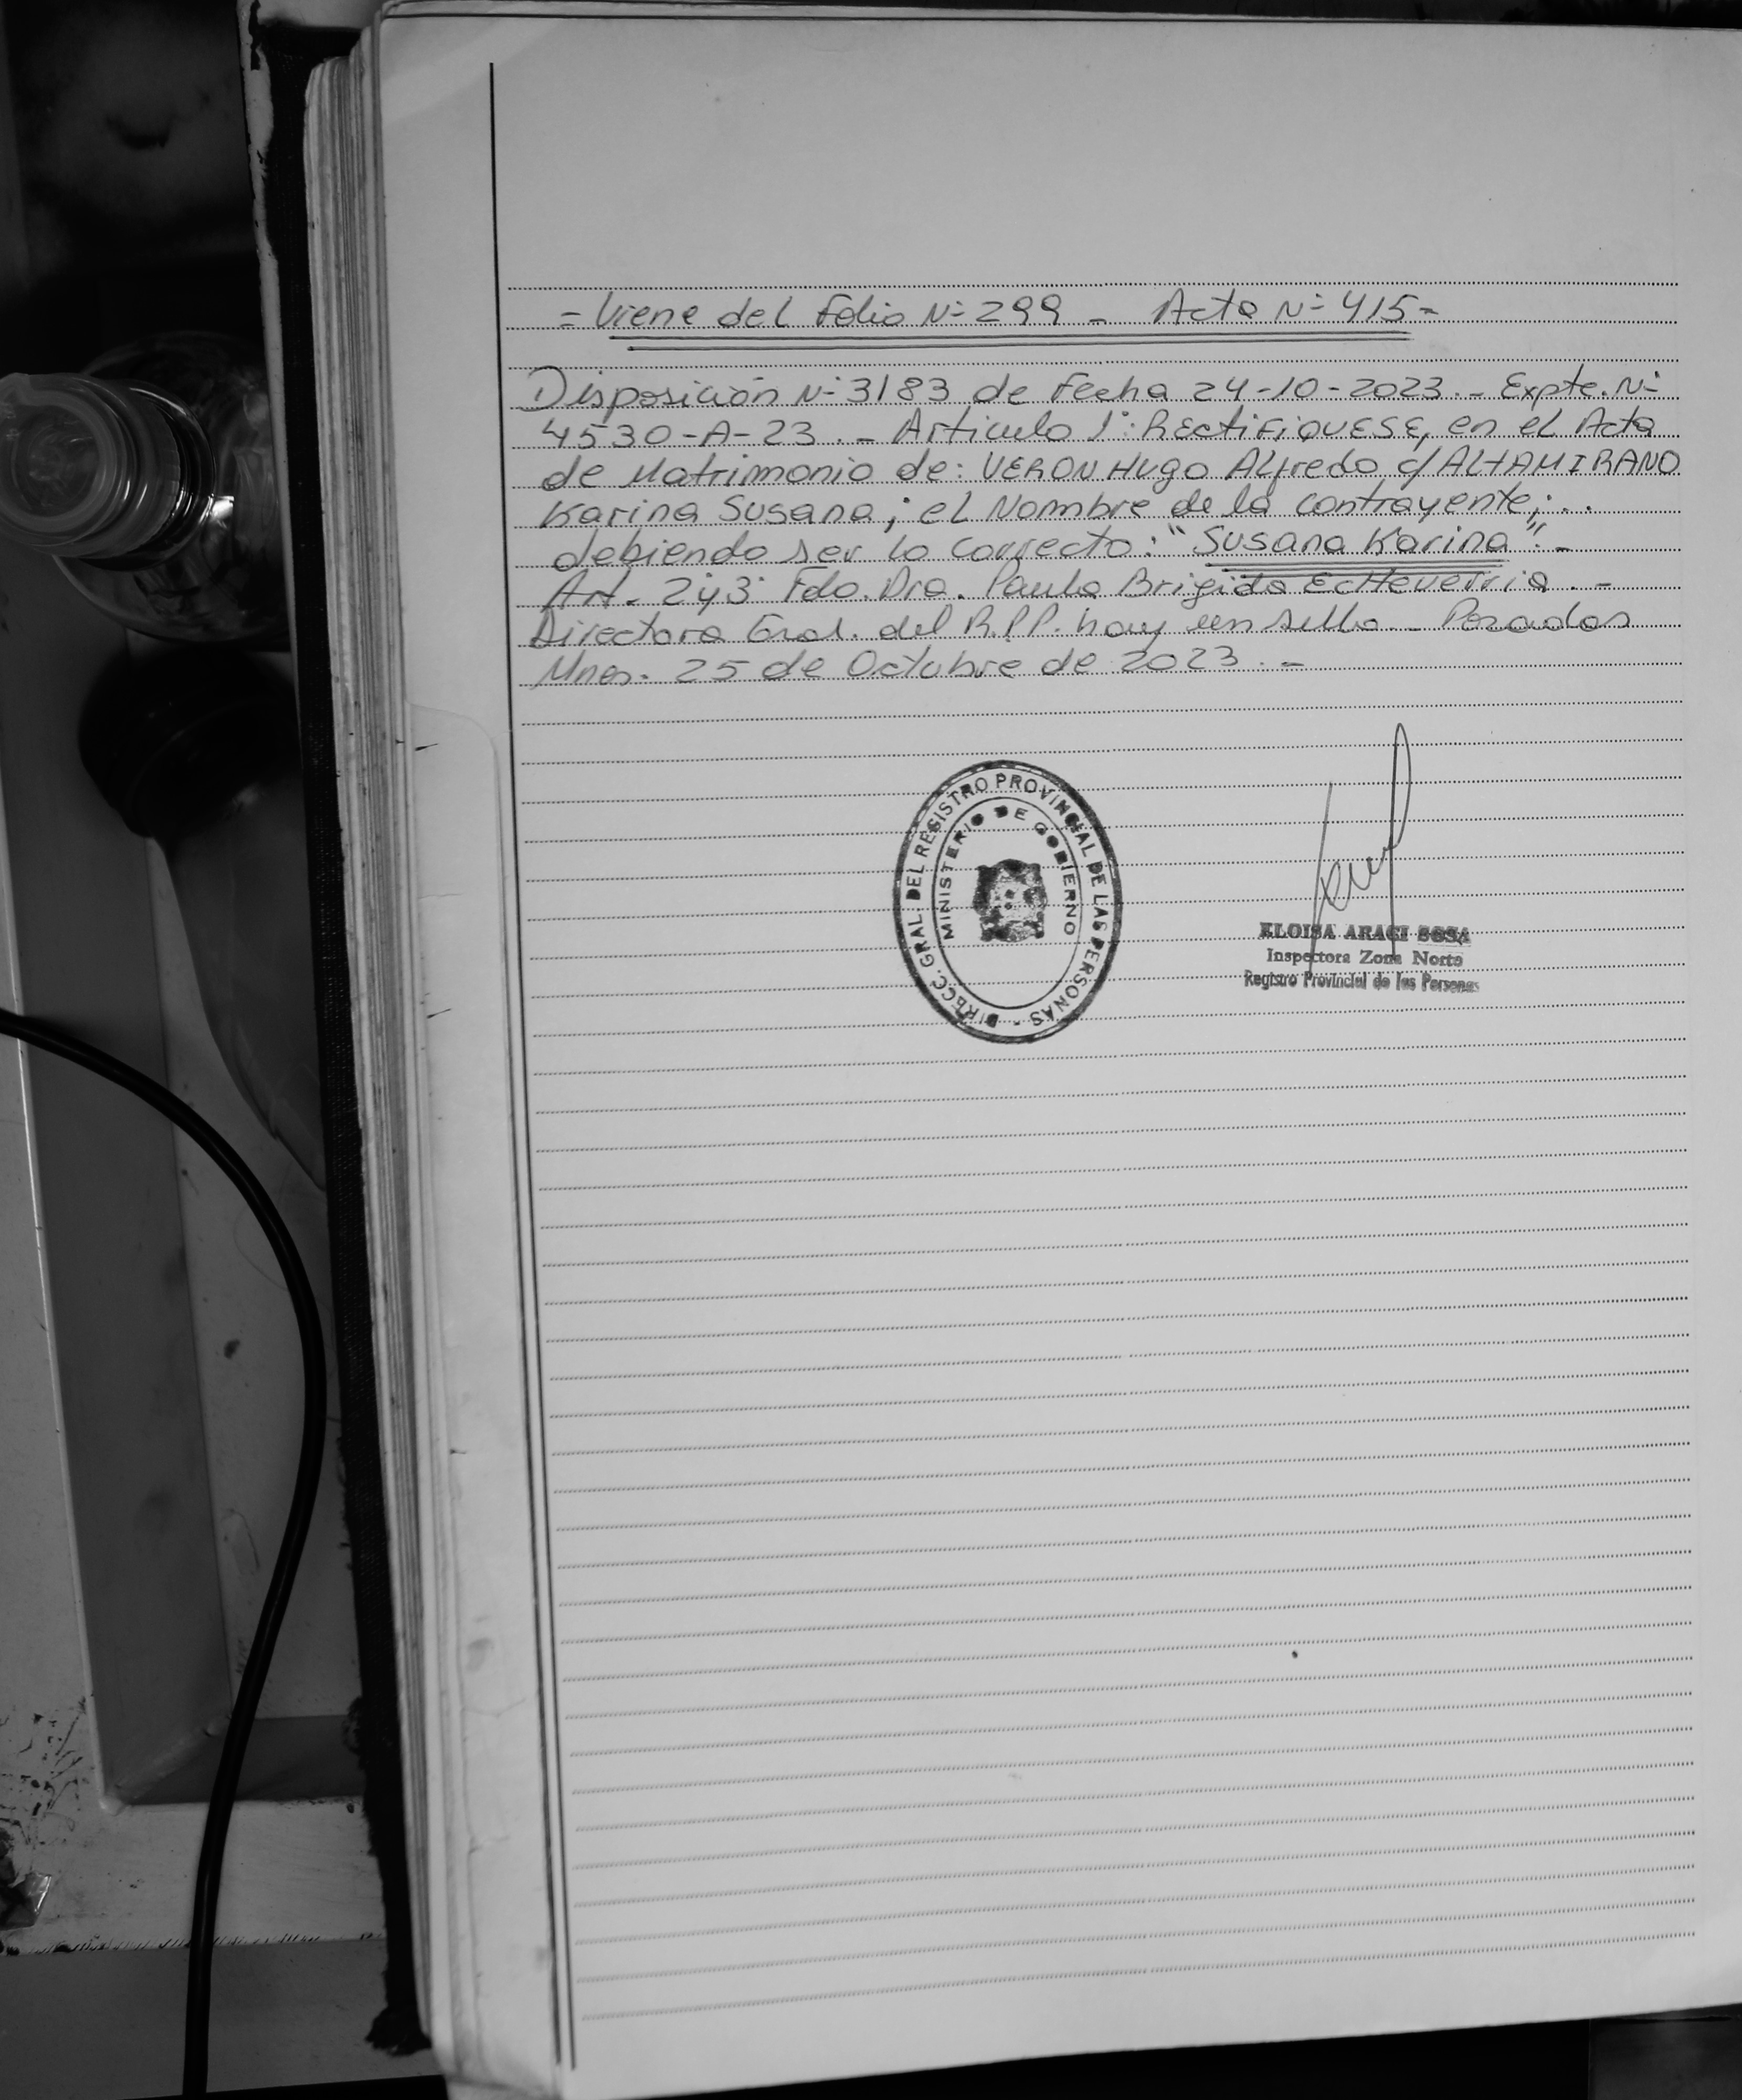 = Viene del Folio Nº 299 - Acta Nº 415 -
Disposición Nº 3183 de Fecha 24-10-2023.- Expte. Nº
4530-A-23.- Articulo 1º: RECTIFIQUESE, en el Acta
de Matrimonio de: VERON Hugo Alfredo c/ ALTAMIRANO
Karina Susana; el Nombre de la contrayente;..
debiendo ser lo correcto: "Susana Karina".-
Art. 2º y 3º Fdo. Dra. Paula Brigida Echeverria.-
Directora Gral. del R.P.P. hay un sello - Posadas
Mnes. 25 de Octubre de 2023.-
DIRECC. GRAL. DEL REGISTRO PROVINCIAL DE LAS PERSONAS -
MINISTERIO DE GOBIERNO
ELOISA ARACI SOSA
Inspectora Zona Norte
Registro Provincial de las Personas